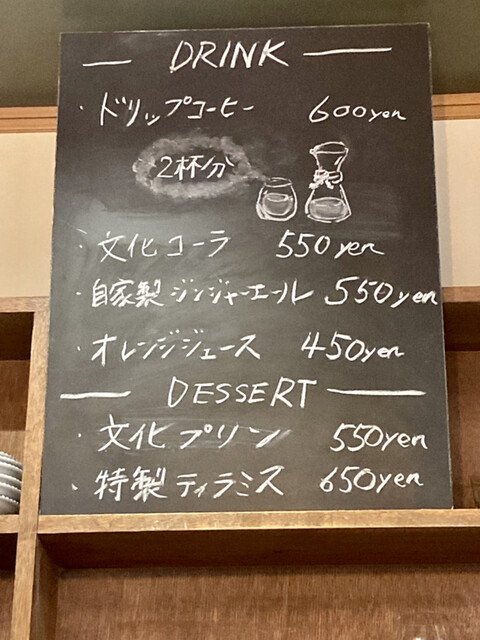 DRINK
・ドリップコーヒー 600yen
2杯分
・文化コーラ 550yen
・自家製ジンジャーエール 550yen
・オレンジジュース 450yen
DESSERT
・文化プリン 550yen
・特製ティラミス 650yen